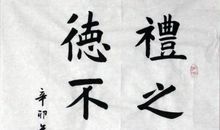 禮之
德不
辛卯年